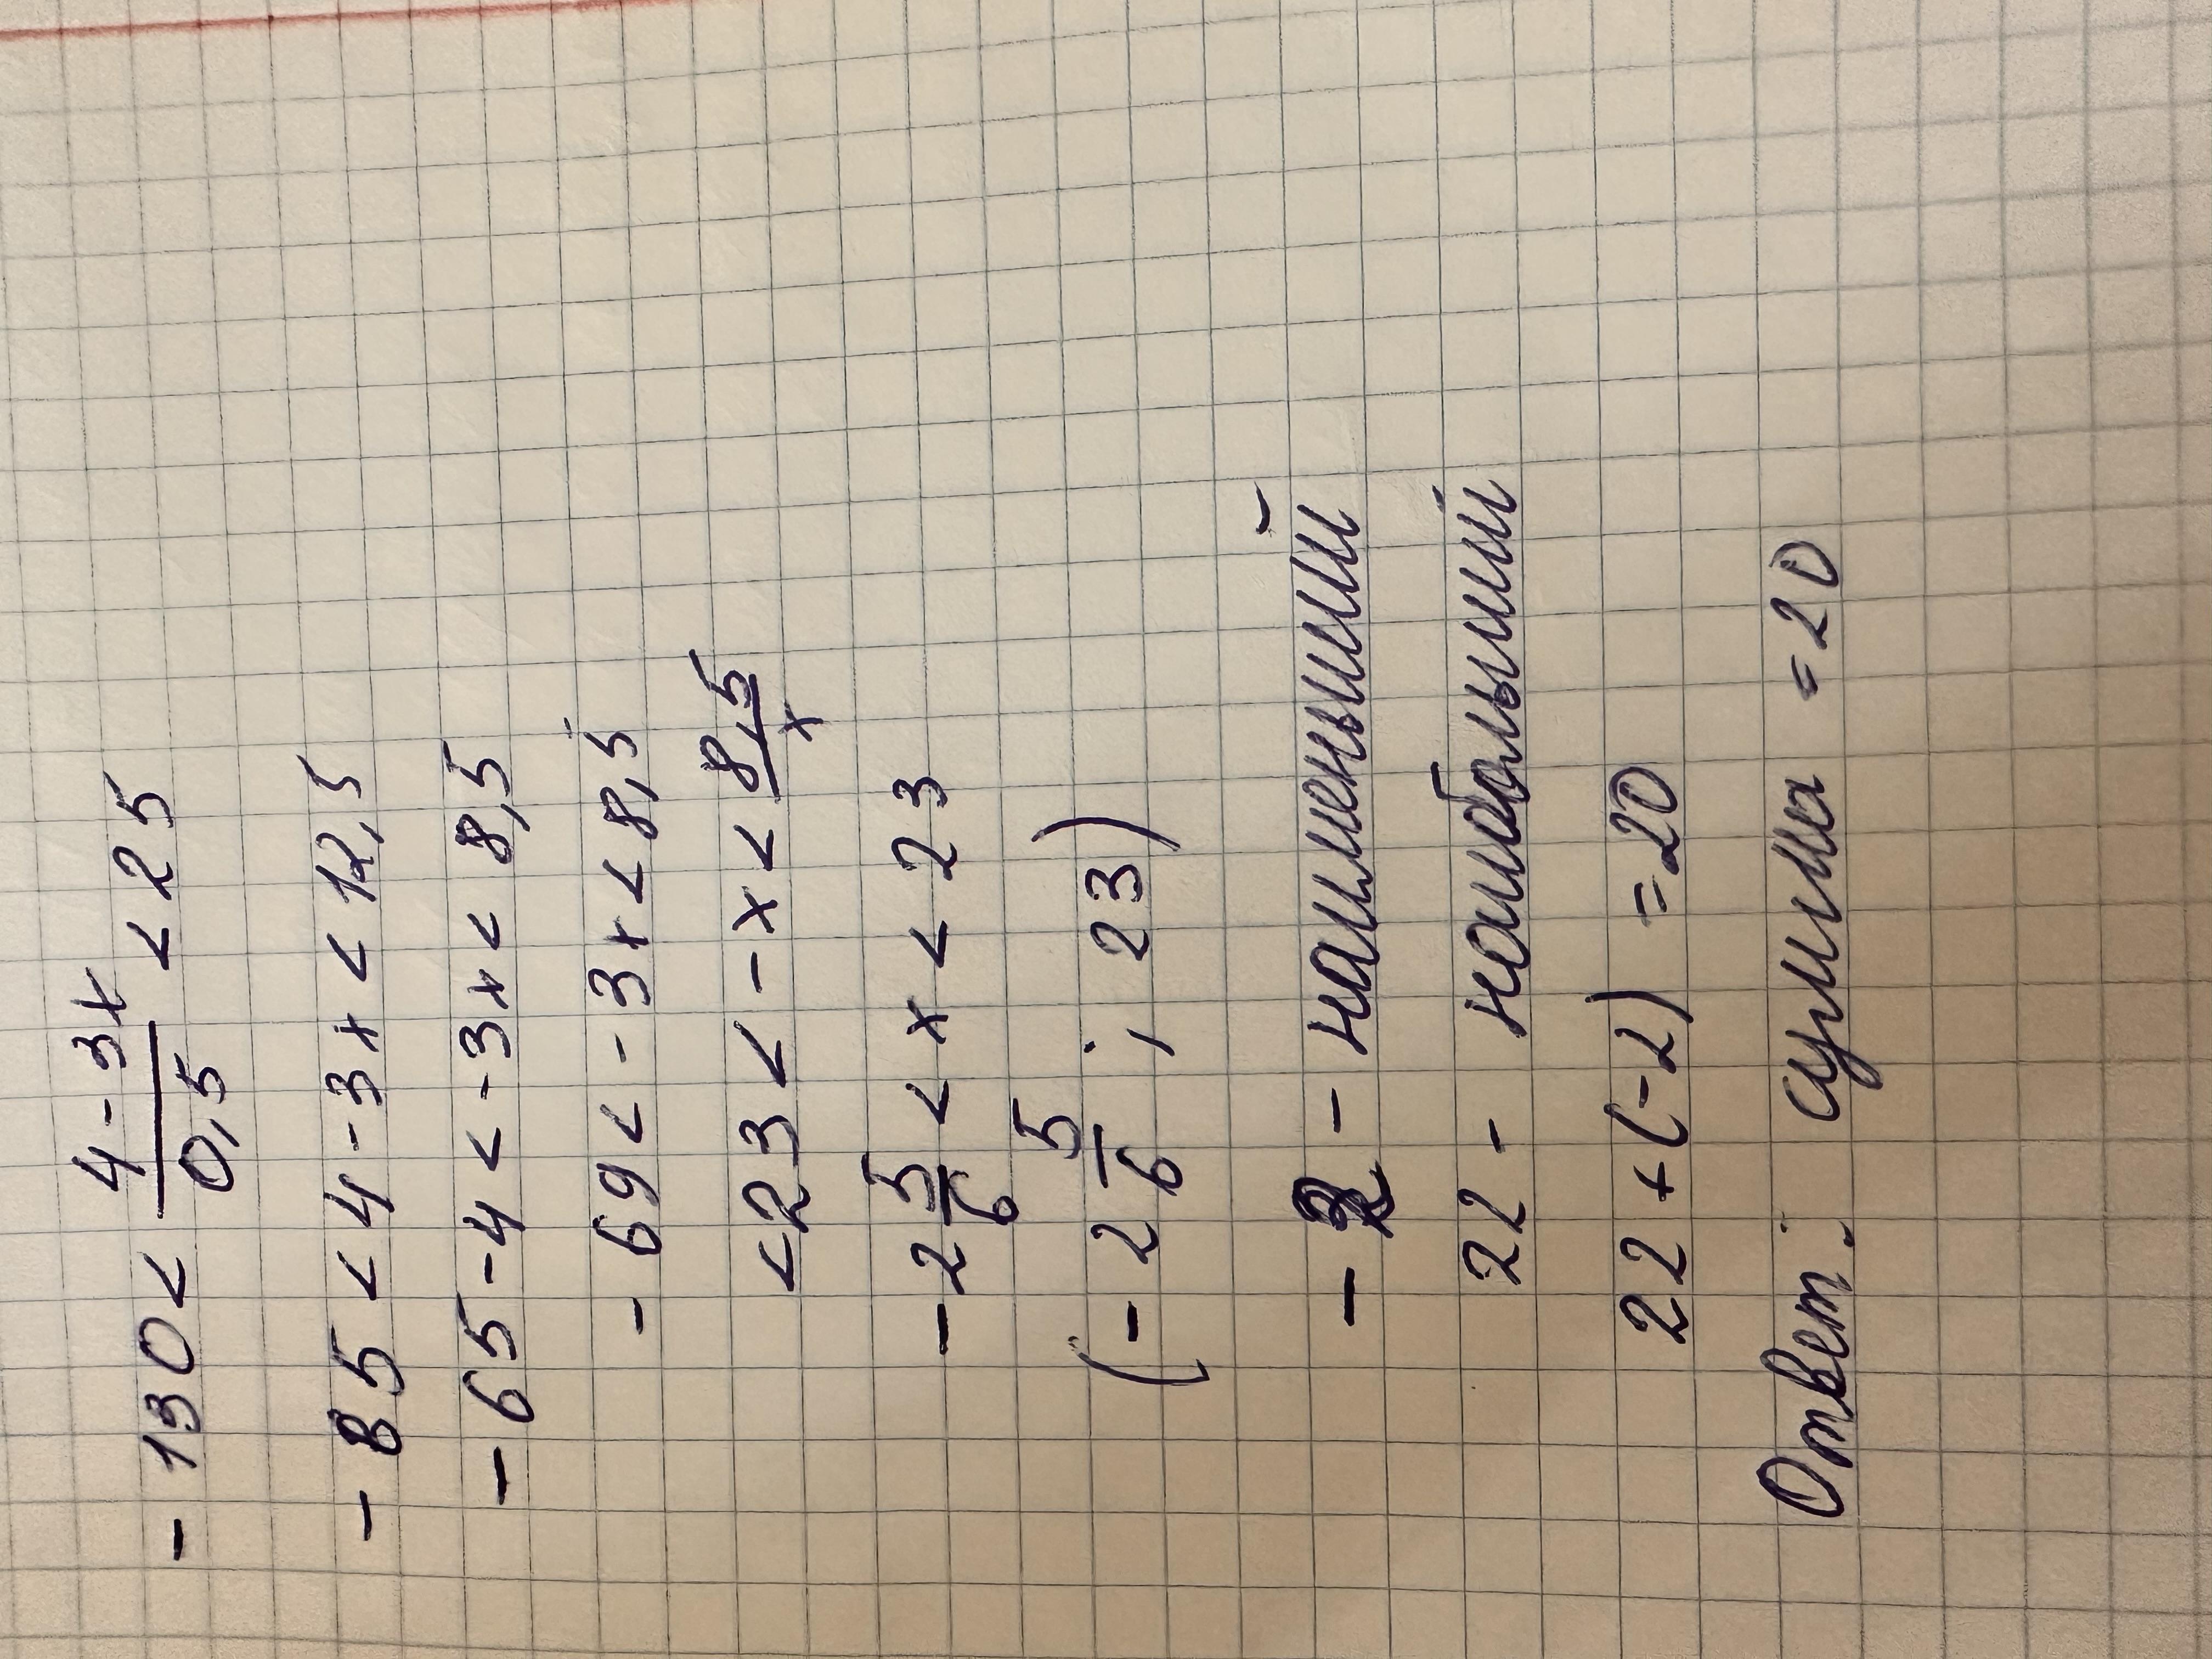 - 130 < 4 - 3x / 0,5 < 25
- 85 < 4 - 3x < 12,5
- 65 - 4 < - 3x < 8,5
- 69 < - 3x < 8,5
< 23 < - x < 8,5 / x
- 2 5/6 < x < 23
(- 2 5/6 ; 23)
- 2 - наименьший
22 - наибольший
22 + (-2) = 20
Ответ: сумма = 20